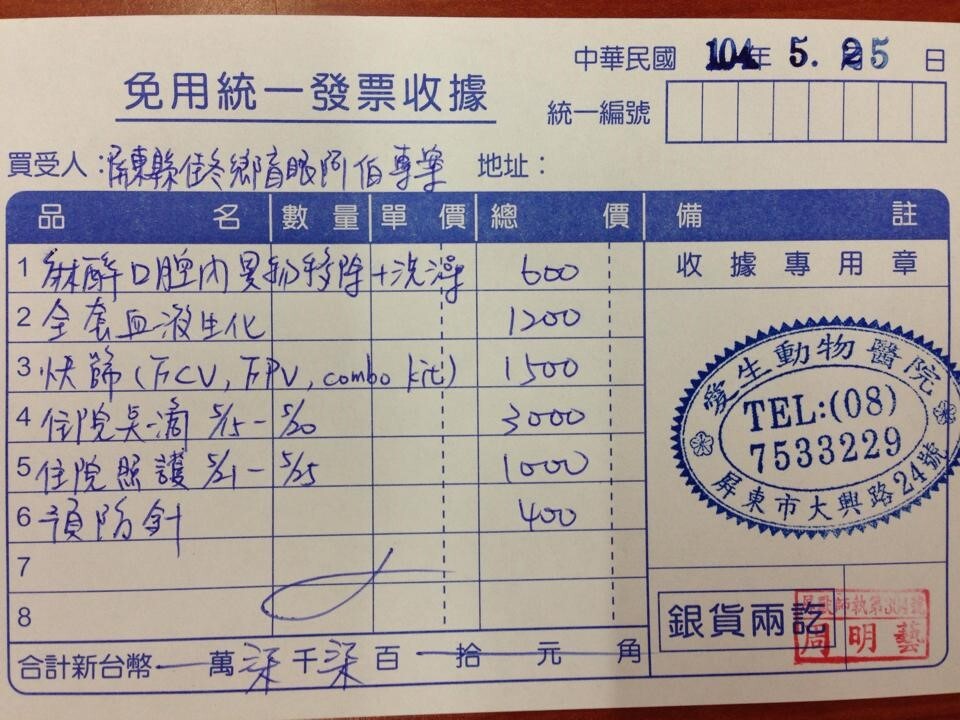 中華民國 104年 5. 25日
免用統一發票收據
統一編號
買受人：屏東縣佳冬鄉盲眼阿伯專案 地址：
品名 數量 單價 總價 備註
收據專用章
1 麻醉口腔內異物移除+洗澡 600
2 全套血液生化 1200
3 快篩(FCV, FPV, combo kit) 1500
4 住院吊滴 5/15-5/20 3000
5 住院照護 5/21-5/25 1000
6 預防針 400
7
8
愛生動物醫院
TEL:(08)
7533229
屏東市大興路24號
銀貨兩訖
周明藝
合計新台幣 萬柒千柒百 拾 元 角